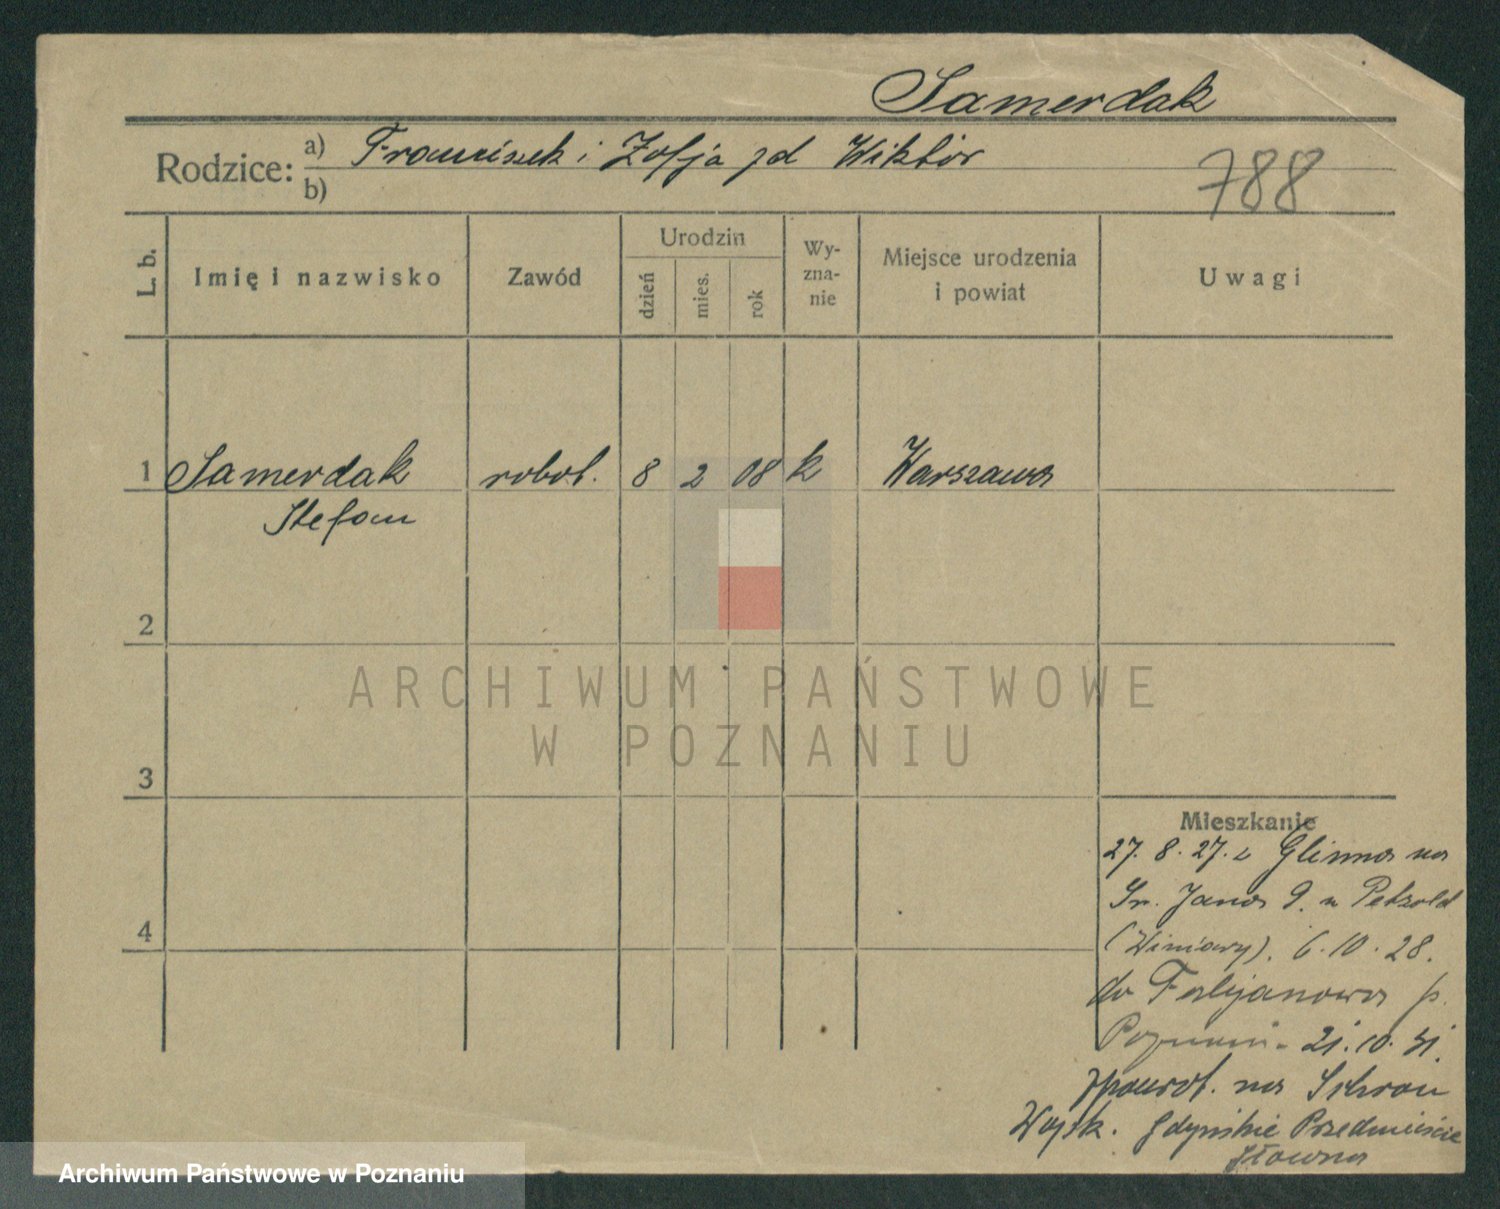 Samerdak
Rodzice: a) Franciszek i Zofja zd Wiktór
b)
788
L. b.
Imię i nazwisko
Zawód
Urodzin
dzień
mies.
rok
Wy-
zna-
nie
Miejsce urodzenia
i powiat
Uwagi
1 Samerdak robot. 8 2 08 k Warszawa
Stefan
2
3
4
ARCHIWUM PAŃSTWOWE
W POZNANIU
Mieszkanie
27. 8. 27. z Glinna na
Św. Jana 9. u Petzold
(Winiary). 6. 10. 28.
do Felijanowa p.
Poznań - 21. 10. 31.
zpowrot. na Schron
Wojsk. Gdyńskie Przedmieście
Główna
Archiwum Państwowe w Poznaniu